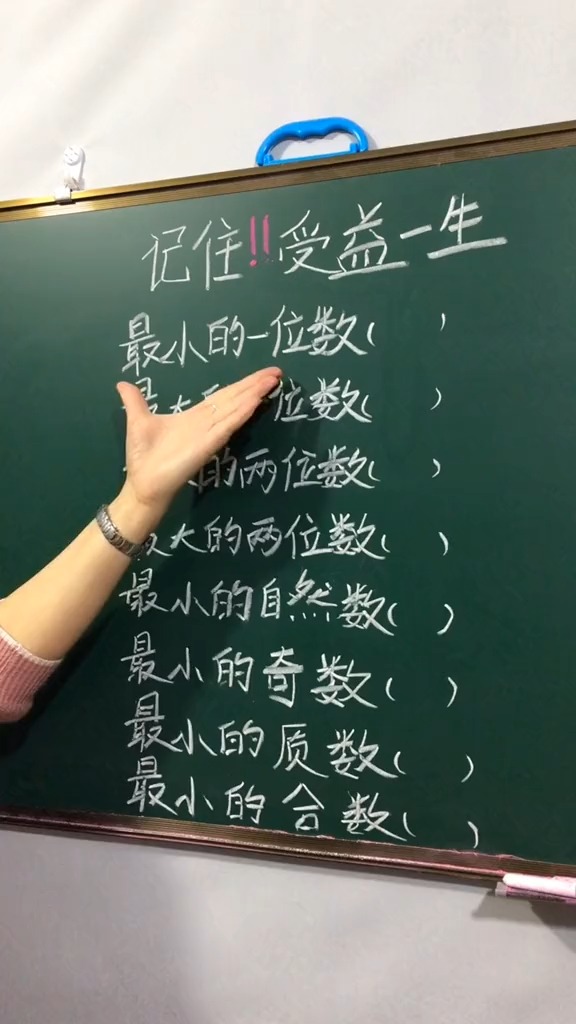 记住!!受益一生
最小的一位数( )
最大 位数( )
的两位数( )
最大的两位数( )
最小的自然数( )
最小的奇数( )
最小的质数( )
最小的合数( )